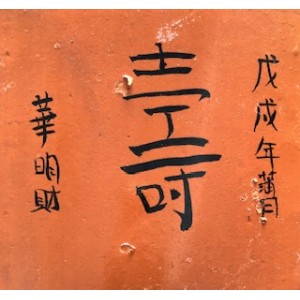 戊戌年
壽
華明財